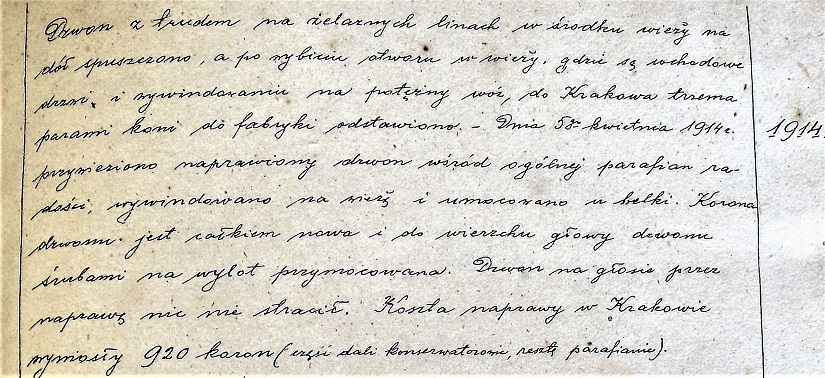 Dzwon z trudem na żelaznych linach w środku wieży na
dół spuszczono, a po wybiciu otworu w wieży, gdzie są wchodowe
drzwi, i wywindowaniu na potężny wóz, do Krakowa trzema
parami koni do fabryki odstawiono. – Dnia 5go kwietnia 1914 r. 1914.
przywieziono naprawiony dzwon wśród ogólnej parafian ra-
dości, wywindowano na wieżę i umocowano u belki. Korona
dzwonu jest całkiem nowa i do wierzchu głowy dzwonu
śrubami na wylot przymocowana. Dzwon na głosie przez
naprawę nic nie stracił. Koszta naprawy w Krakowie
wynosiły 920 koron (część dali konserwatorowie, resztę parafianie).